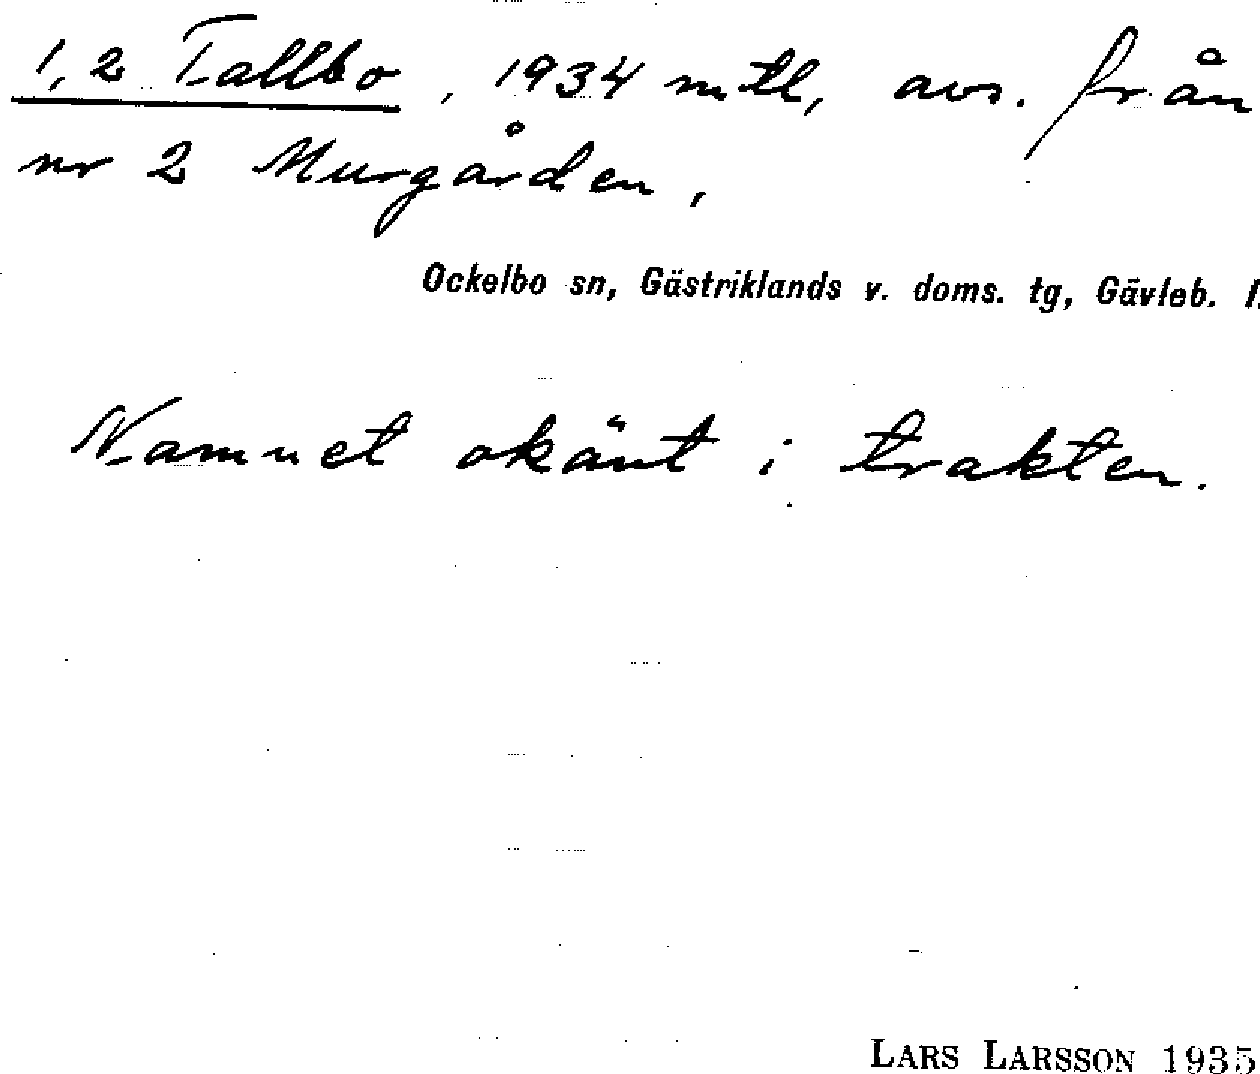 1,2 Tallbo, 1934 mtl, avs. från
nr 2 Murgården,
Ockelbo sn, Gästriklands v. doms. tg, Gävleb. l.
Namnet okänt i trakten.
LARS LARSSON 1935